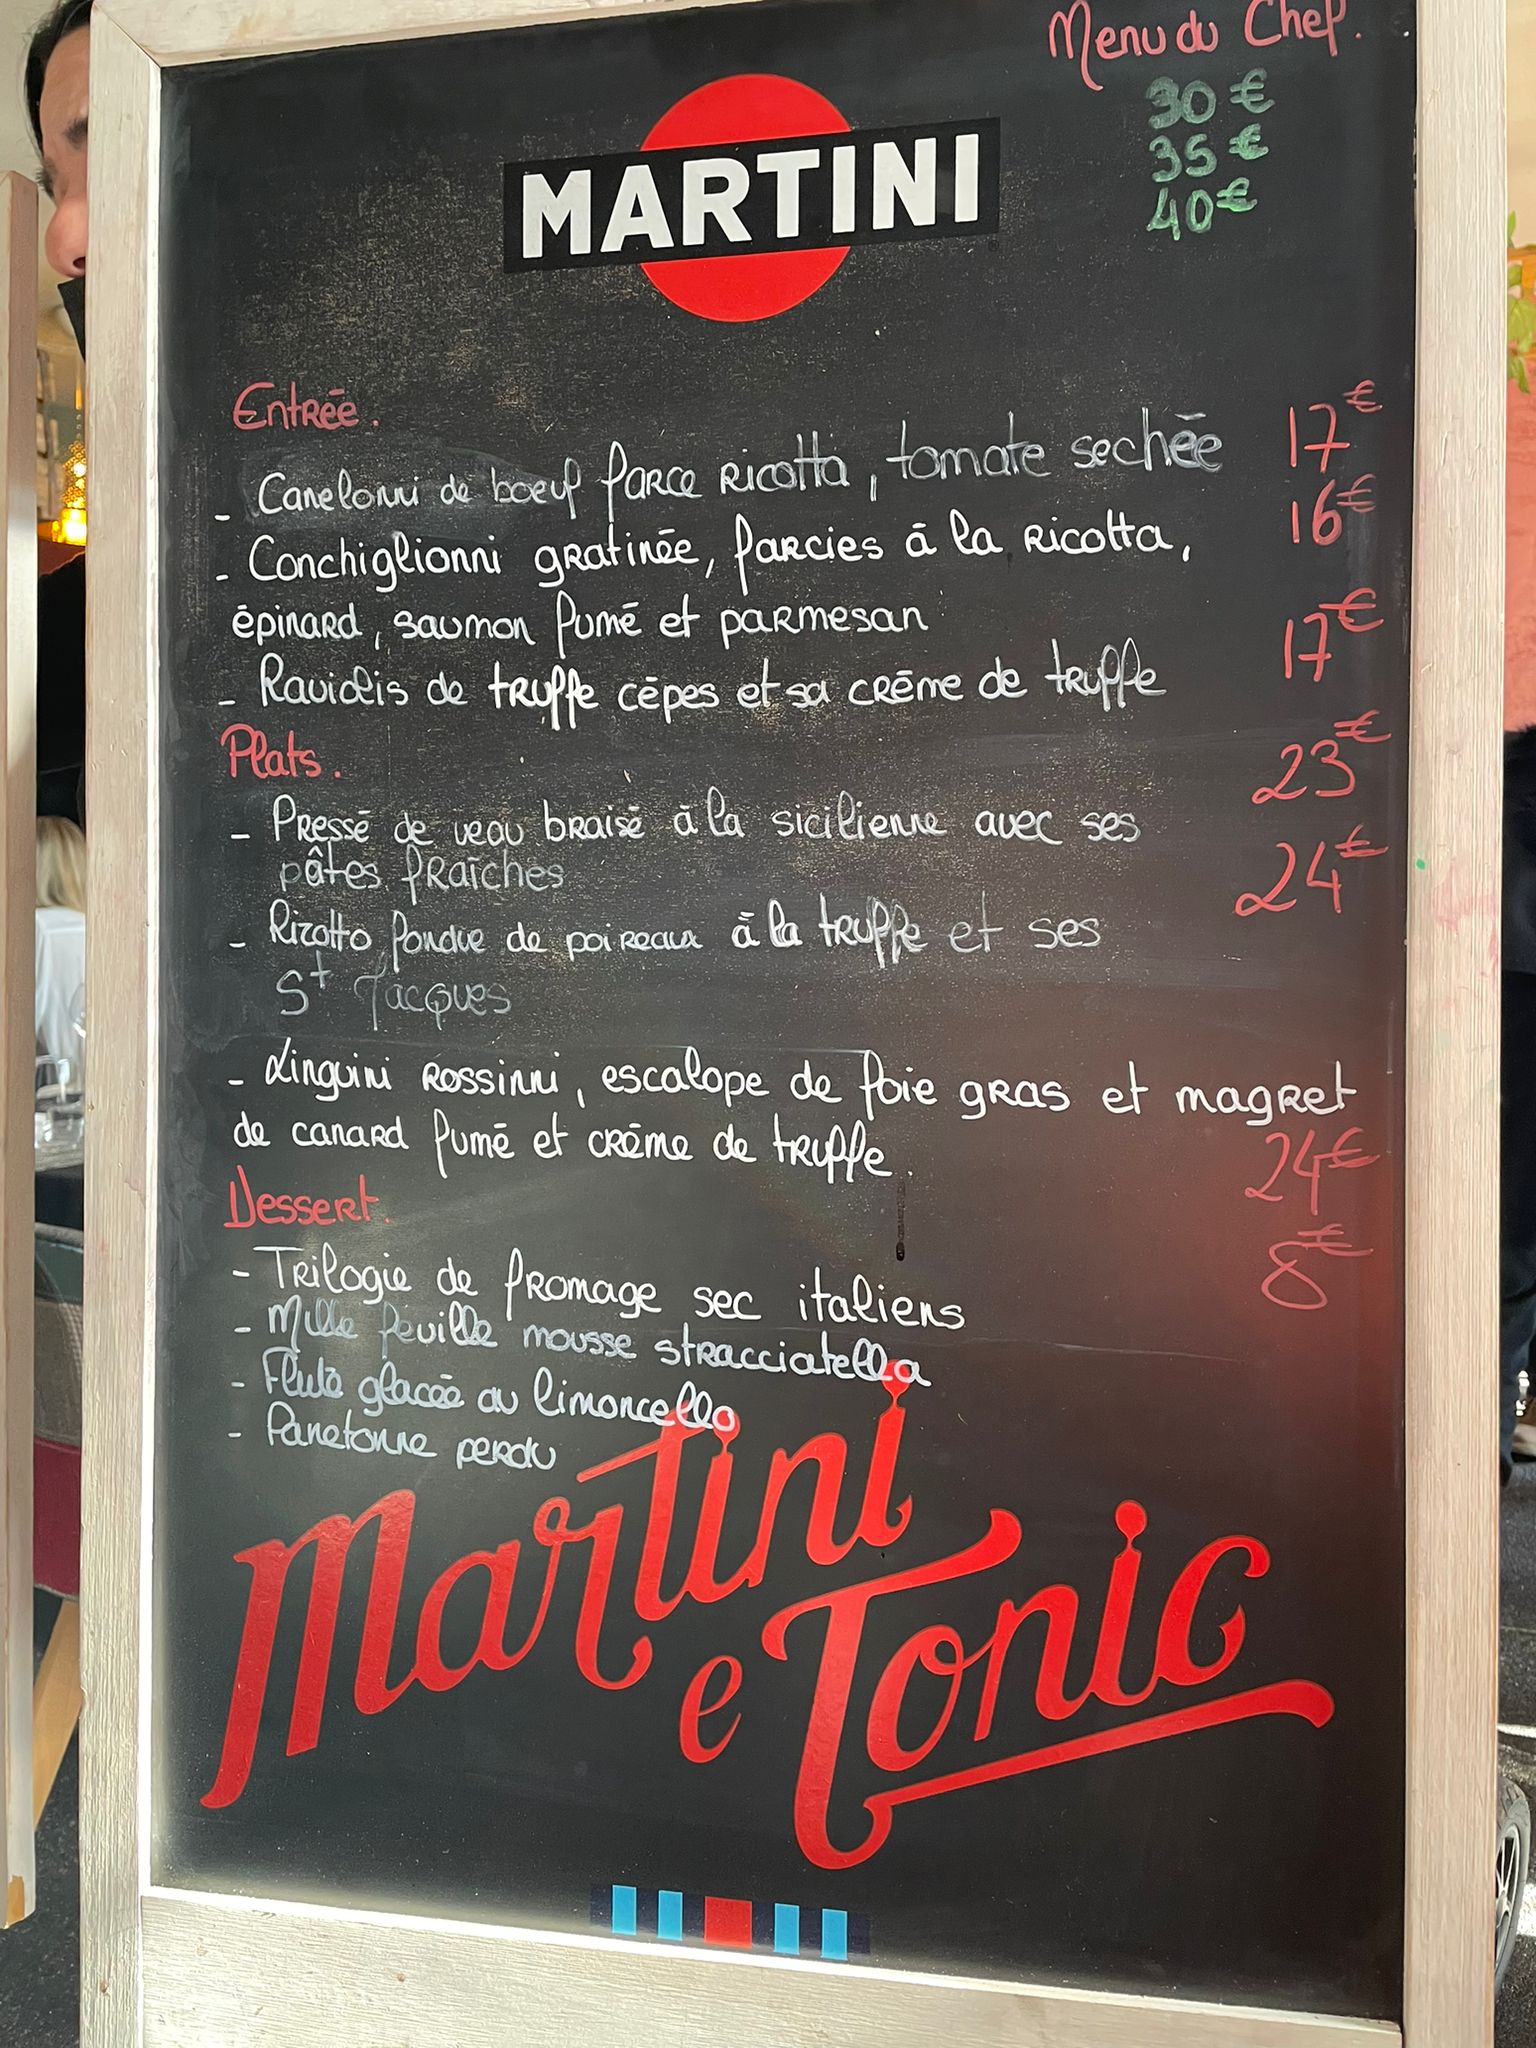 Menu du Chef.
30 €
35 €
40 €
MARTINI
Entrée.
- Canelonni de boeuf farce ricotta, tomate sechée 17€
- Conchiglionni gratinée, farcies à la ricotta, 16€
épinard, saumon fumé et parmesan
- Raviolis de truffe cèpes et sa crème de truffe 17€
Plats.
- Pressé de veau braisé à la sicilienne avec ses 23€
pâtes fraîches
- Rizotto fondue de poireaux à la truffe et ses 24€
St Jacques
- Linguini rossinni, escalope de foie gras et magret
de canard fumé et crème de truffe. 24€
Dessert. 8€
- Trilogie de fromage sec italiens
- Mille feuille mousse stracciatella
- Flute glacée au limoncello
- Panetonne perdu
Martini
e Tonic